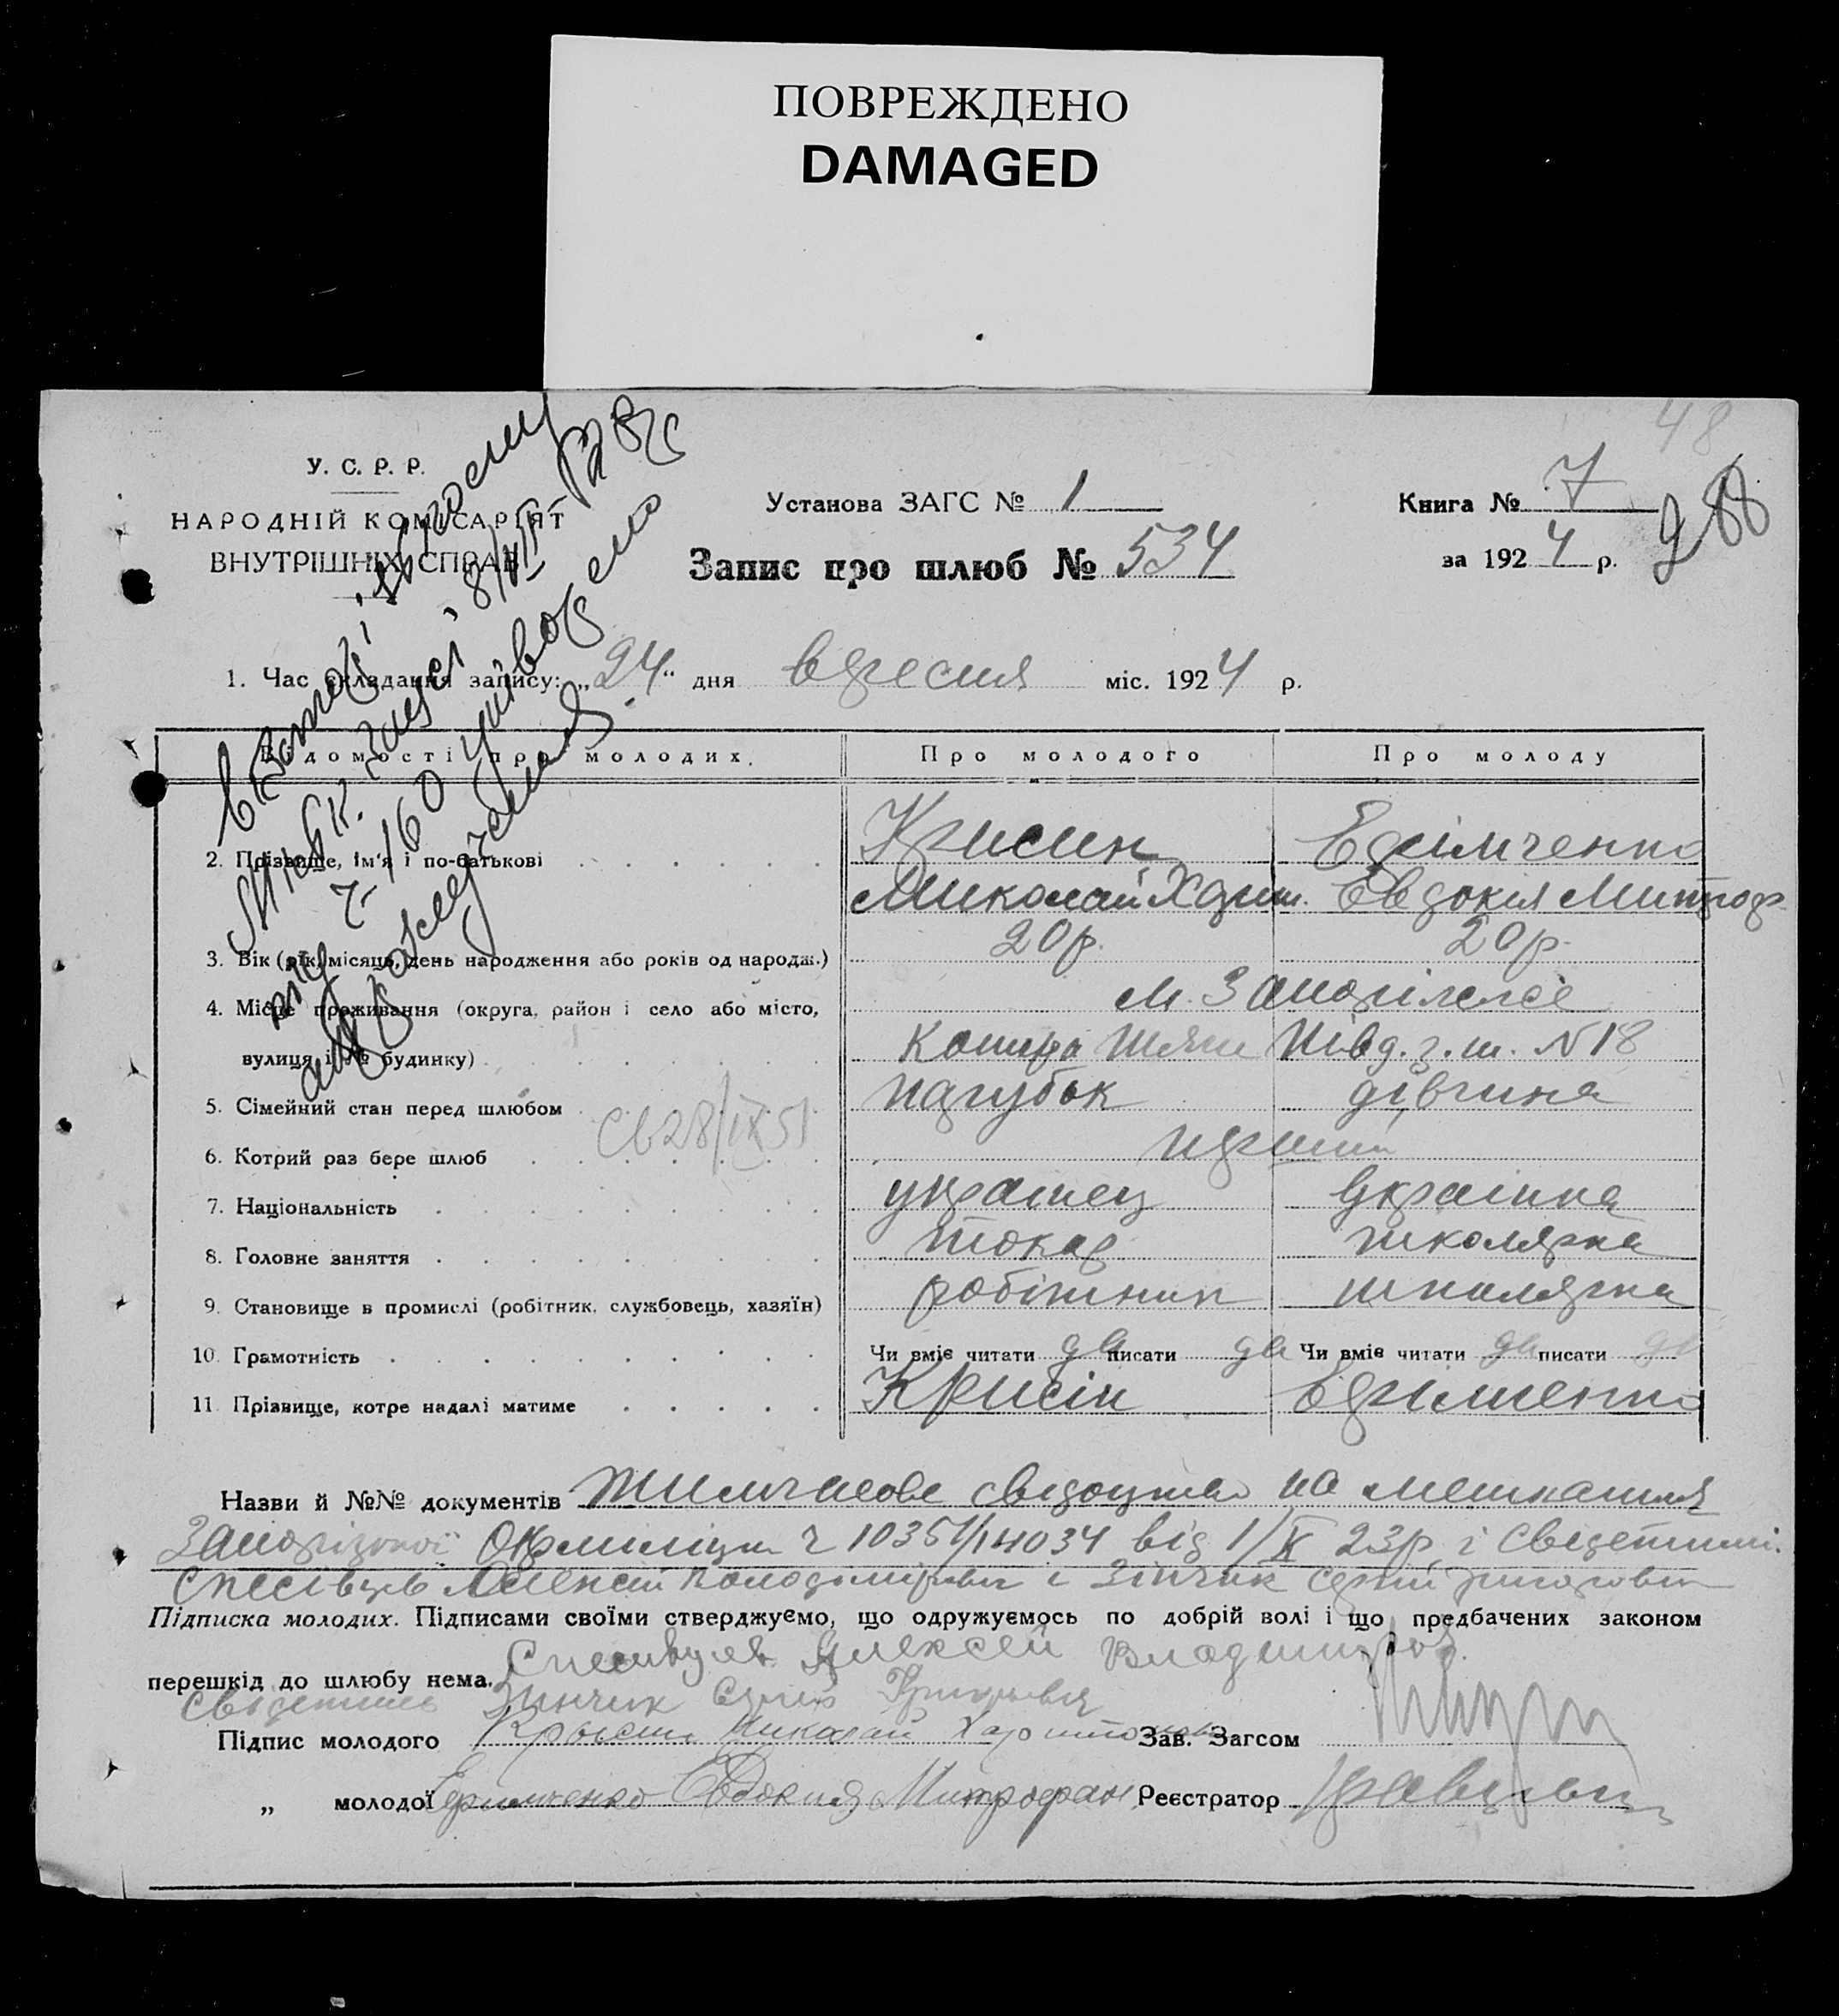 ПОВРЕЖДЕНО
DAMAGED
48
У. С. Р. Р.
НАРОДНІЙ КОМІСАРІЯТ
ВНУТРІШНІХ СПРАВ
Установа ЗАГС № 1
Запис про шлюб № 534
Книга № 7
за 1924 р.
288
1. Час складання запису: „24“ дня вересня міс. 1924 р.
Відомості про молодих. Про молодого Про молоду
2. Прізвище, ім'я і по-батькові Крисин Ефімченко
Миколай Харит. Евдокія Митроф.
3. Вік (рік, місяць, день народження або років од народж.) 20 р. 20 р.
4. Місце проживання (округа, район і село або місто, м. Запоріжжє
вулиця і № будинку) Півд. з. ш. N 18
5. Сімейний стан перед шлюбом парубок дівчина
6. Котрий раз бере шлюб перший
7. Національність українец Українка
8. Головне заняття токар школярка
9. Становище в промислі (робітник, службовець, хазяїн) робітник школярка
10. Грамотність Чи вміє читати да писати да Чи вміє читати да писати да
11. Прізвище, котре надалі матиме Крисін Ефименко
Назви й №№ документів тимчасове свідоцтво на мешкання
Запорізької Окрміліціи ч 10351/14034 від 1/X 23р. і свідетилі:
Спесівцев Алексій Володимірович і Зінчик Сергій Григорович
Підписка молодих. Підписами своїми стверджуємо, що одружуємось по добрій волі і що предбачених законом
перешкід до шлюбу нема. Спесивцев Алексей Владимиров.
Зинчик
Підпис молодого Крысин Николай Харитонов Зав. Загсом
„ молодої Ефимченко Евдокия Митрофан. Реєстратор